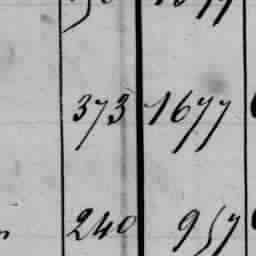 373 1677
240 957